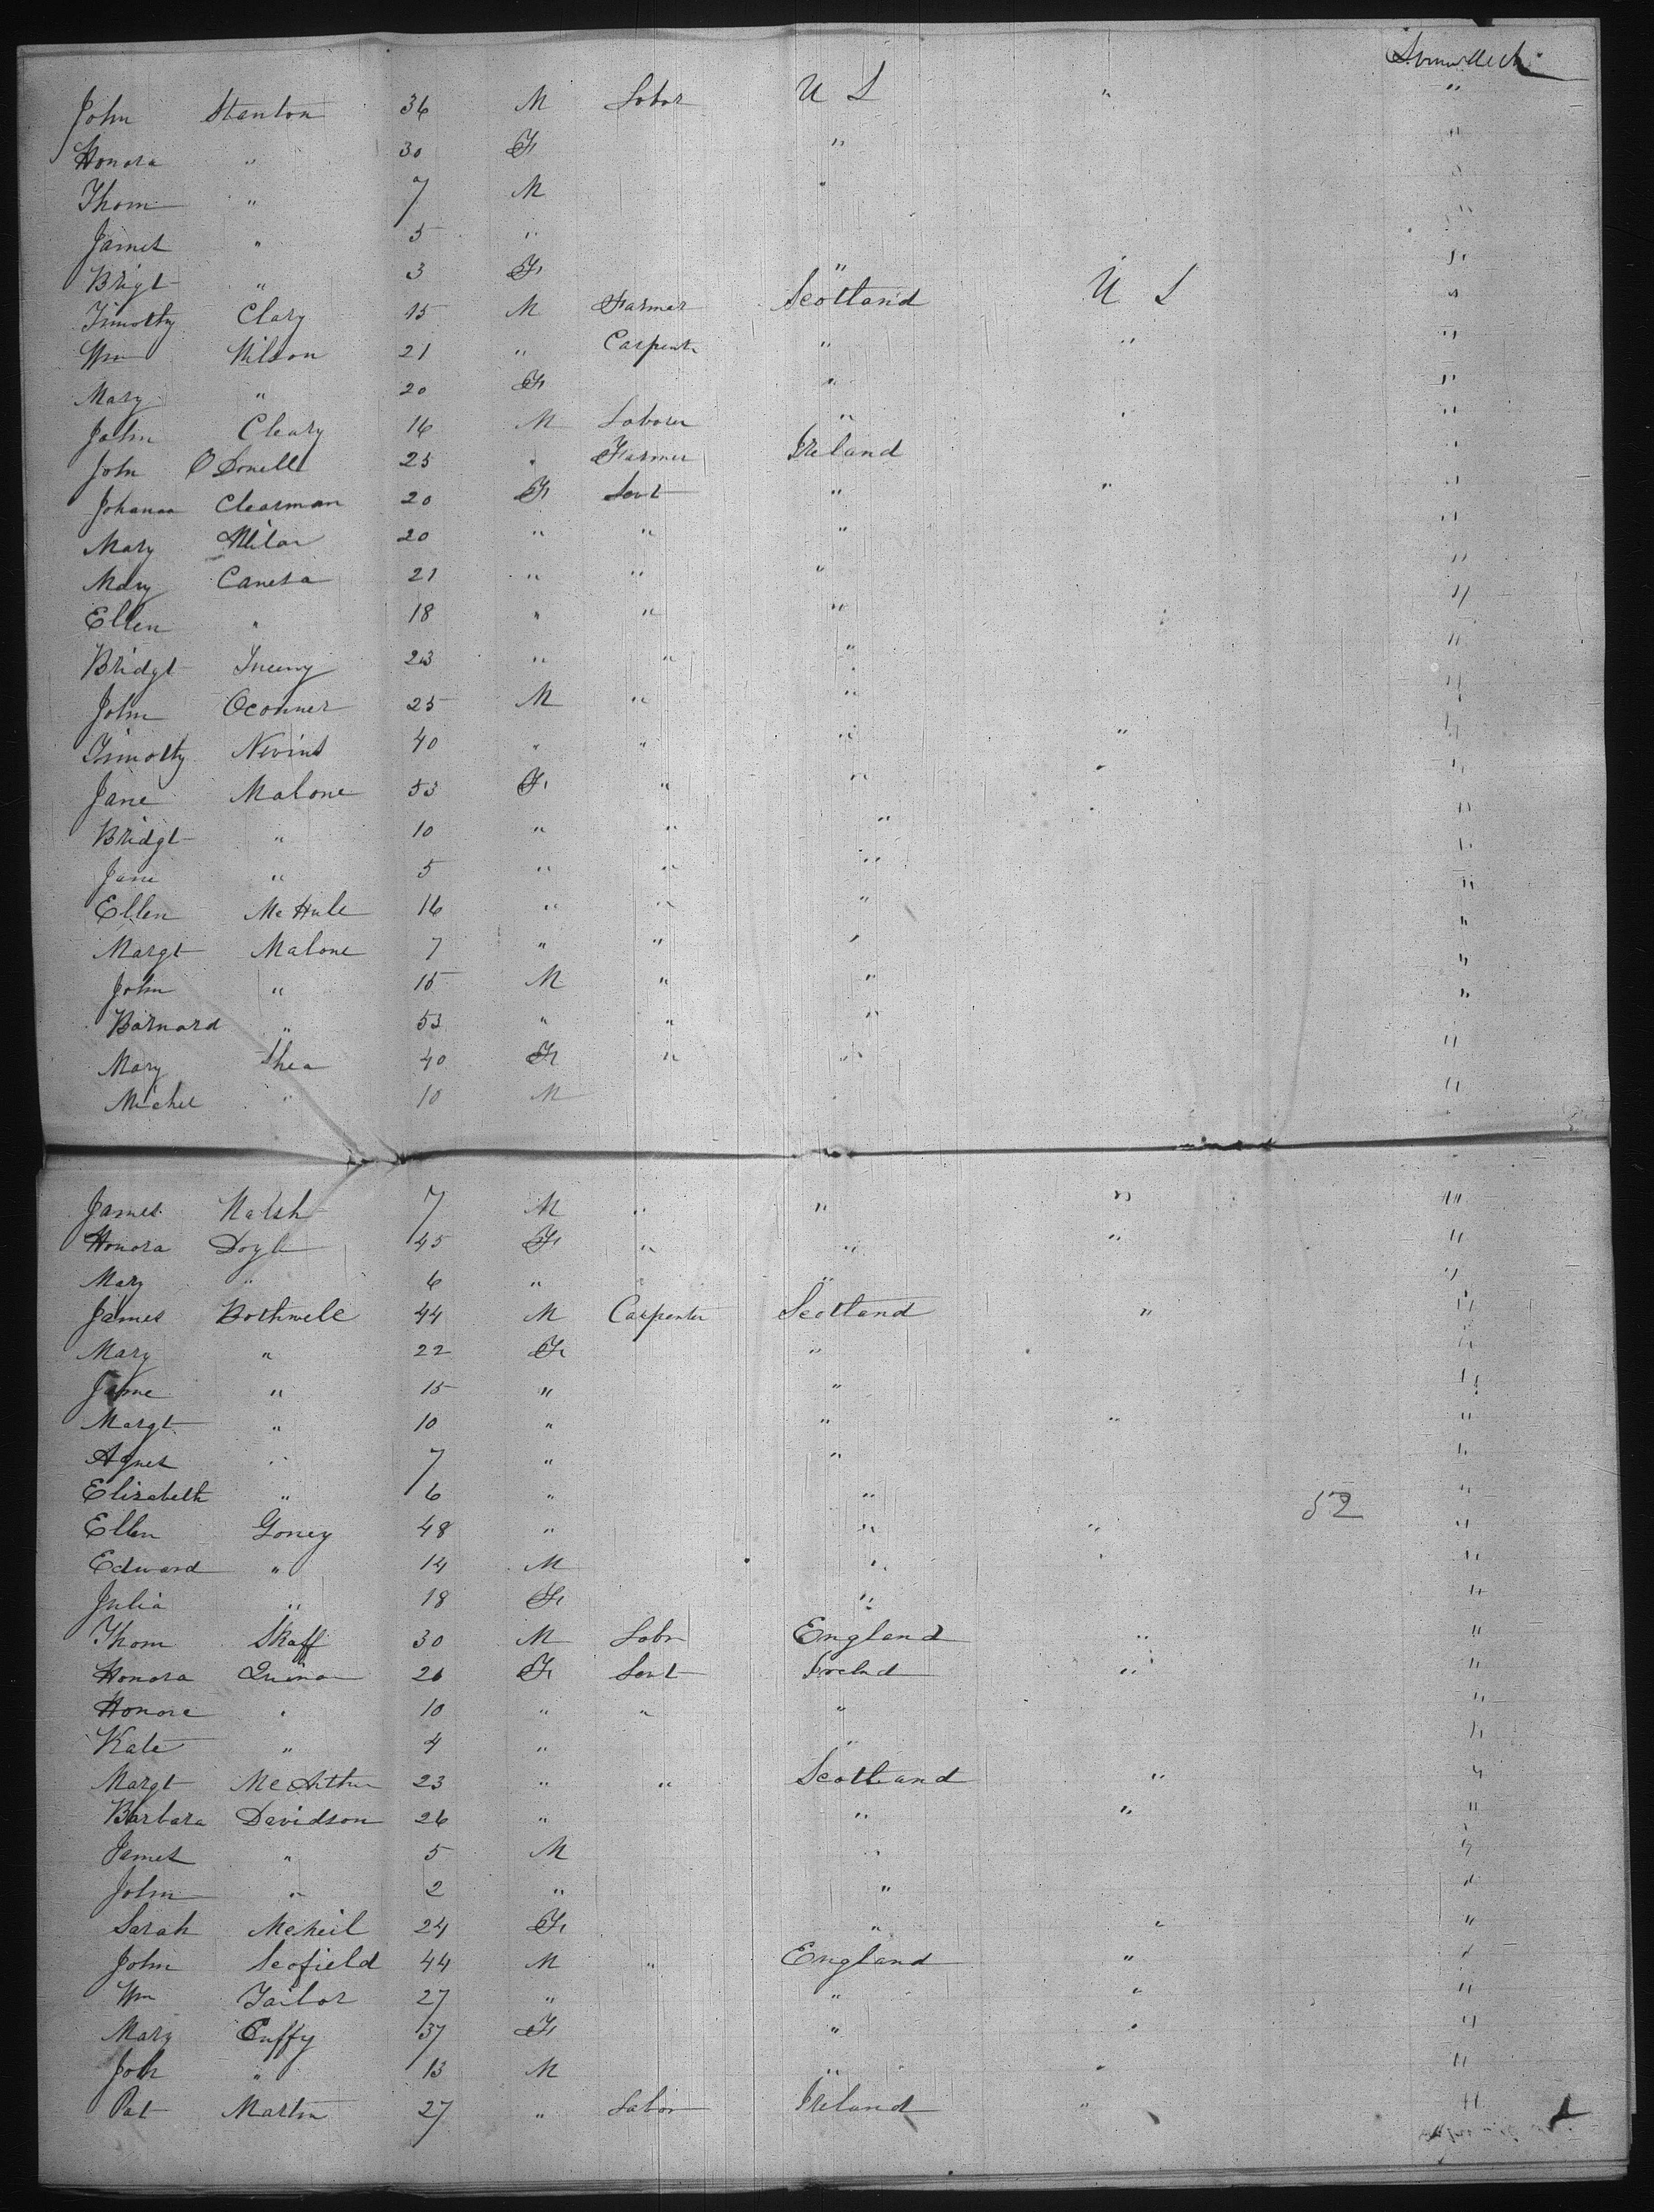 John Stanton 36 M Labor U S " "
Honora " 30 F " "
Thom " 7 M " "
James " 5 " "
Brigt " 3 F " "
Timothy Clary 15 M Farmer Scotland U S "
Wm Wilson 21 " Carpentr " " "
Mary " 20 F " "
John Cleary 16 M Laborer " " "
John O Donell 25 " Farmer Ireland "
Johanna Clearman 20 F Servt " " "
Mary 20 " " " "
Mary Canesa 21 " " " "
Ellen " 18 " " " "
Bridgt 23 " " " "
John Oconner 25 M " " "
Timothy Nevins 40 " " " " "
Jane Malone 53 F " " " "
Bridgt " 10 " " " " "
Jane " 5 " " " "
Ellen 16 " " " "
Margt Malone 7 " " " "
John " 15 M " " "
Barnard " 53 " " " "
Mary Shea 40 F " " "
Michel " 10 M " "
James Walsh 7 M " " " "
Honora Doyle 45 F " " " "
Mary " 6 " " "
James Bothwell 44 M Carpenter Scotland " "
Mary " 22 F " "
Jane " 15 " " "
Margt " 10 " " " "
Agnes " 7 " " "
Elizabeth " 6 " " 52 "
Ellen Goney 48 " " " "
Edward " 14 M " " "
Julia " 18 F " "
Thom Skaff 30 M Labr England " "
Honora Quina 26 F Servt Irelnd " "
Honora " 10 " " " "
Kate " 4 " " "
Margt McArthur 23 " " Scotland " "
Barbara Davidson 26 " " " "
James " 5 M " "
John " 2 " " "
Sarah McNeil 24 F " " "
John Scofield 44 M " England " "
Wm Tailor 27 " " " "
Mary Cuffy 37 F " " "
Joh " 13 M " " "
Pat Martin 27 " Labor Ireland " "